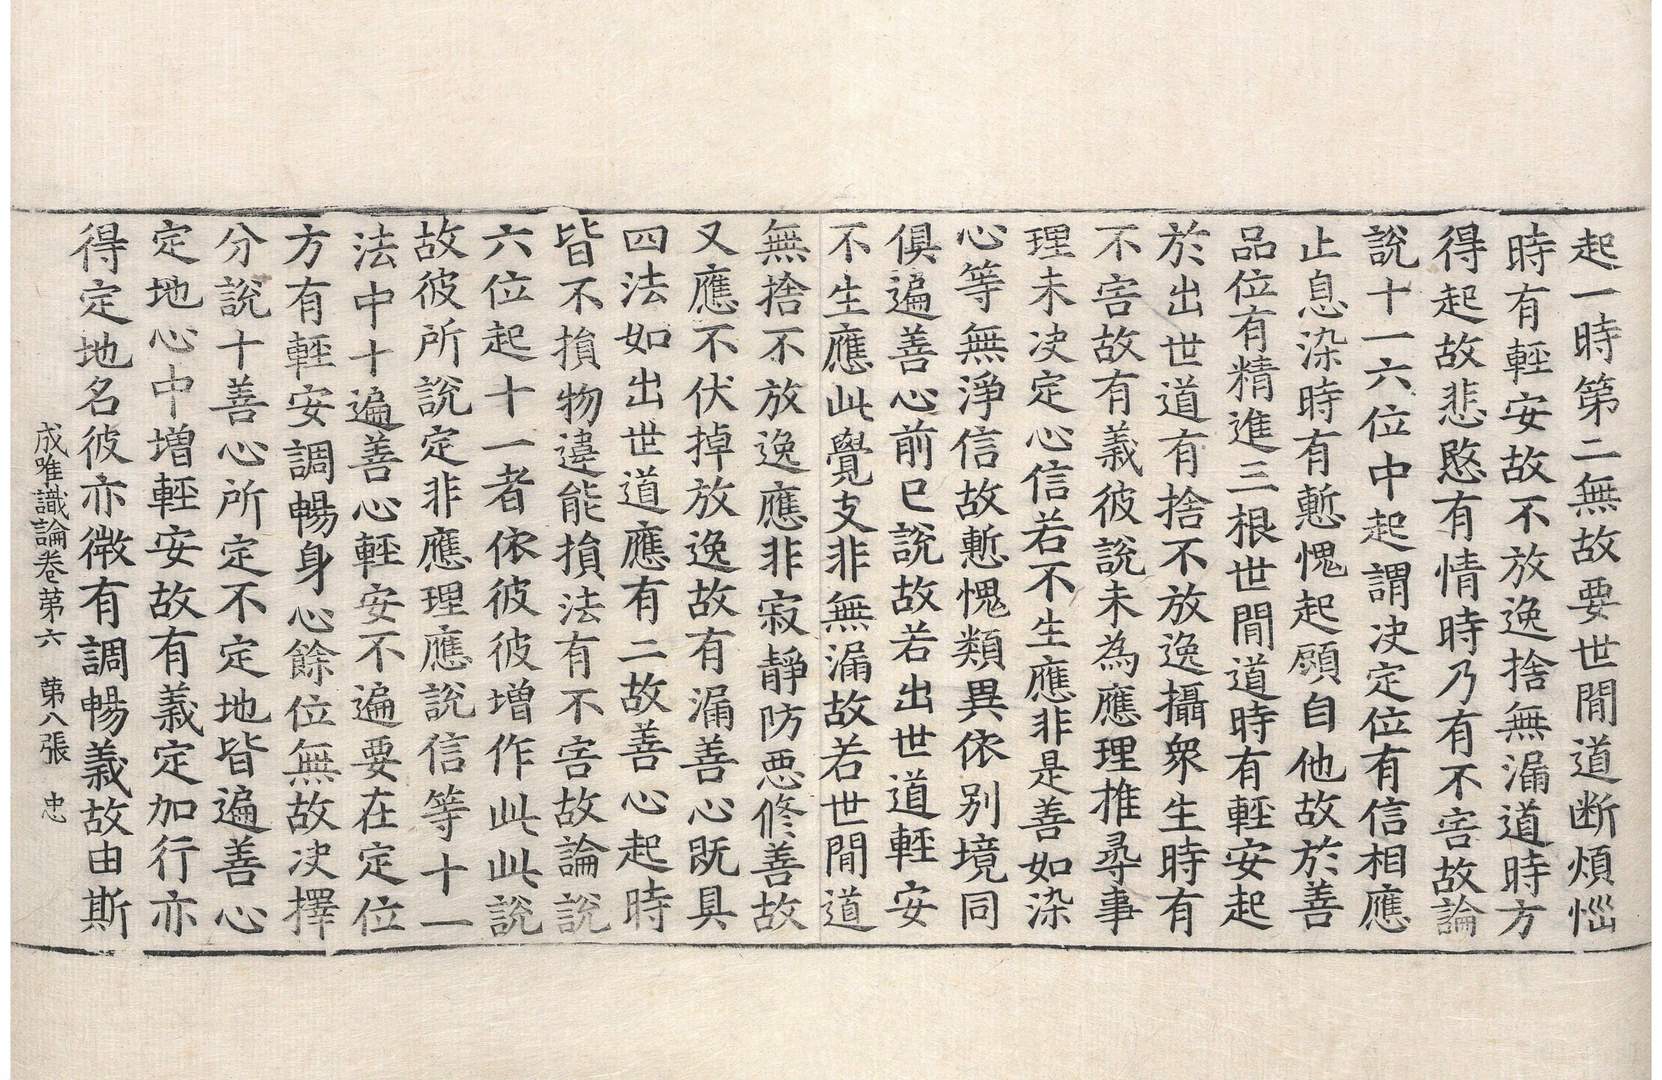 起一時第二無故要世間道断煩惱
時有輕安故不放逸捨無漏道時方
得起故悲愍有情時乃有不害故論
說十一六位中起謂決定位有信相應
止息染時有慙愧起顧自他故於善
品位有精進三根世間道時有輕安起
於出世道有捨不放逸攝衆生時有
不害故有義彼說未為應理推尋事
理未決定心信若不生應非是善如染
心等無淨信故慙愧類異依別境同
俱遍善心前已說故若出世道輕安
不生應此覺支非無漏故若世間道
無捨不放逸應非寂靜防惡修善故
又應不伏掉放逸故有漏善心既具
四法如出世道應有二故善心起時
皆不損物違能損法有不害故論說
六位起十一者依彼彼增作此此說
故彼所說定非應理應說信等十一
法中十遍善心輕安不遍要在定位
方有輕安調暢身心餘位無故決擇
分說十善心所定不定地皆遍善心
定地心中增輕安故有義定加行亦
得定地名彼亦微有調暢義故由斯
成唯識論卷第六　第八張　忠